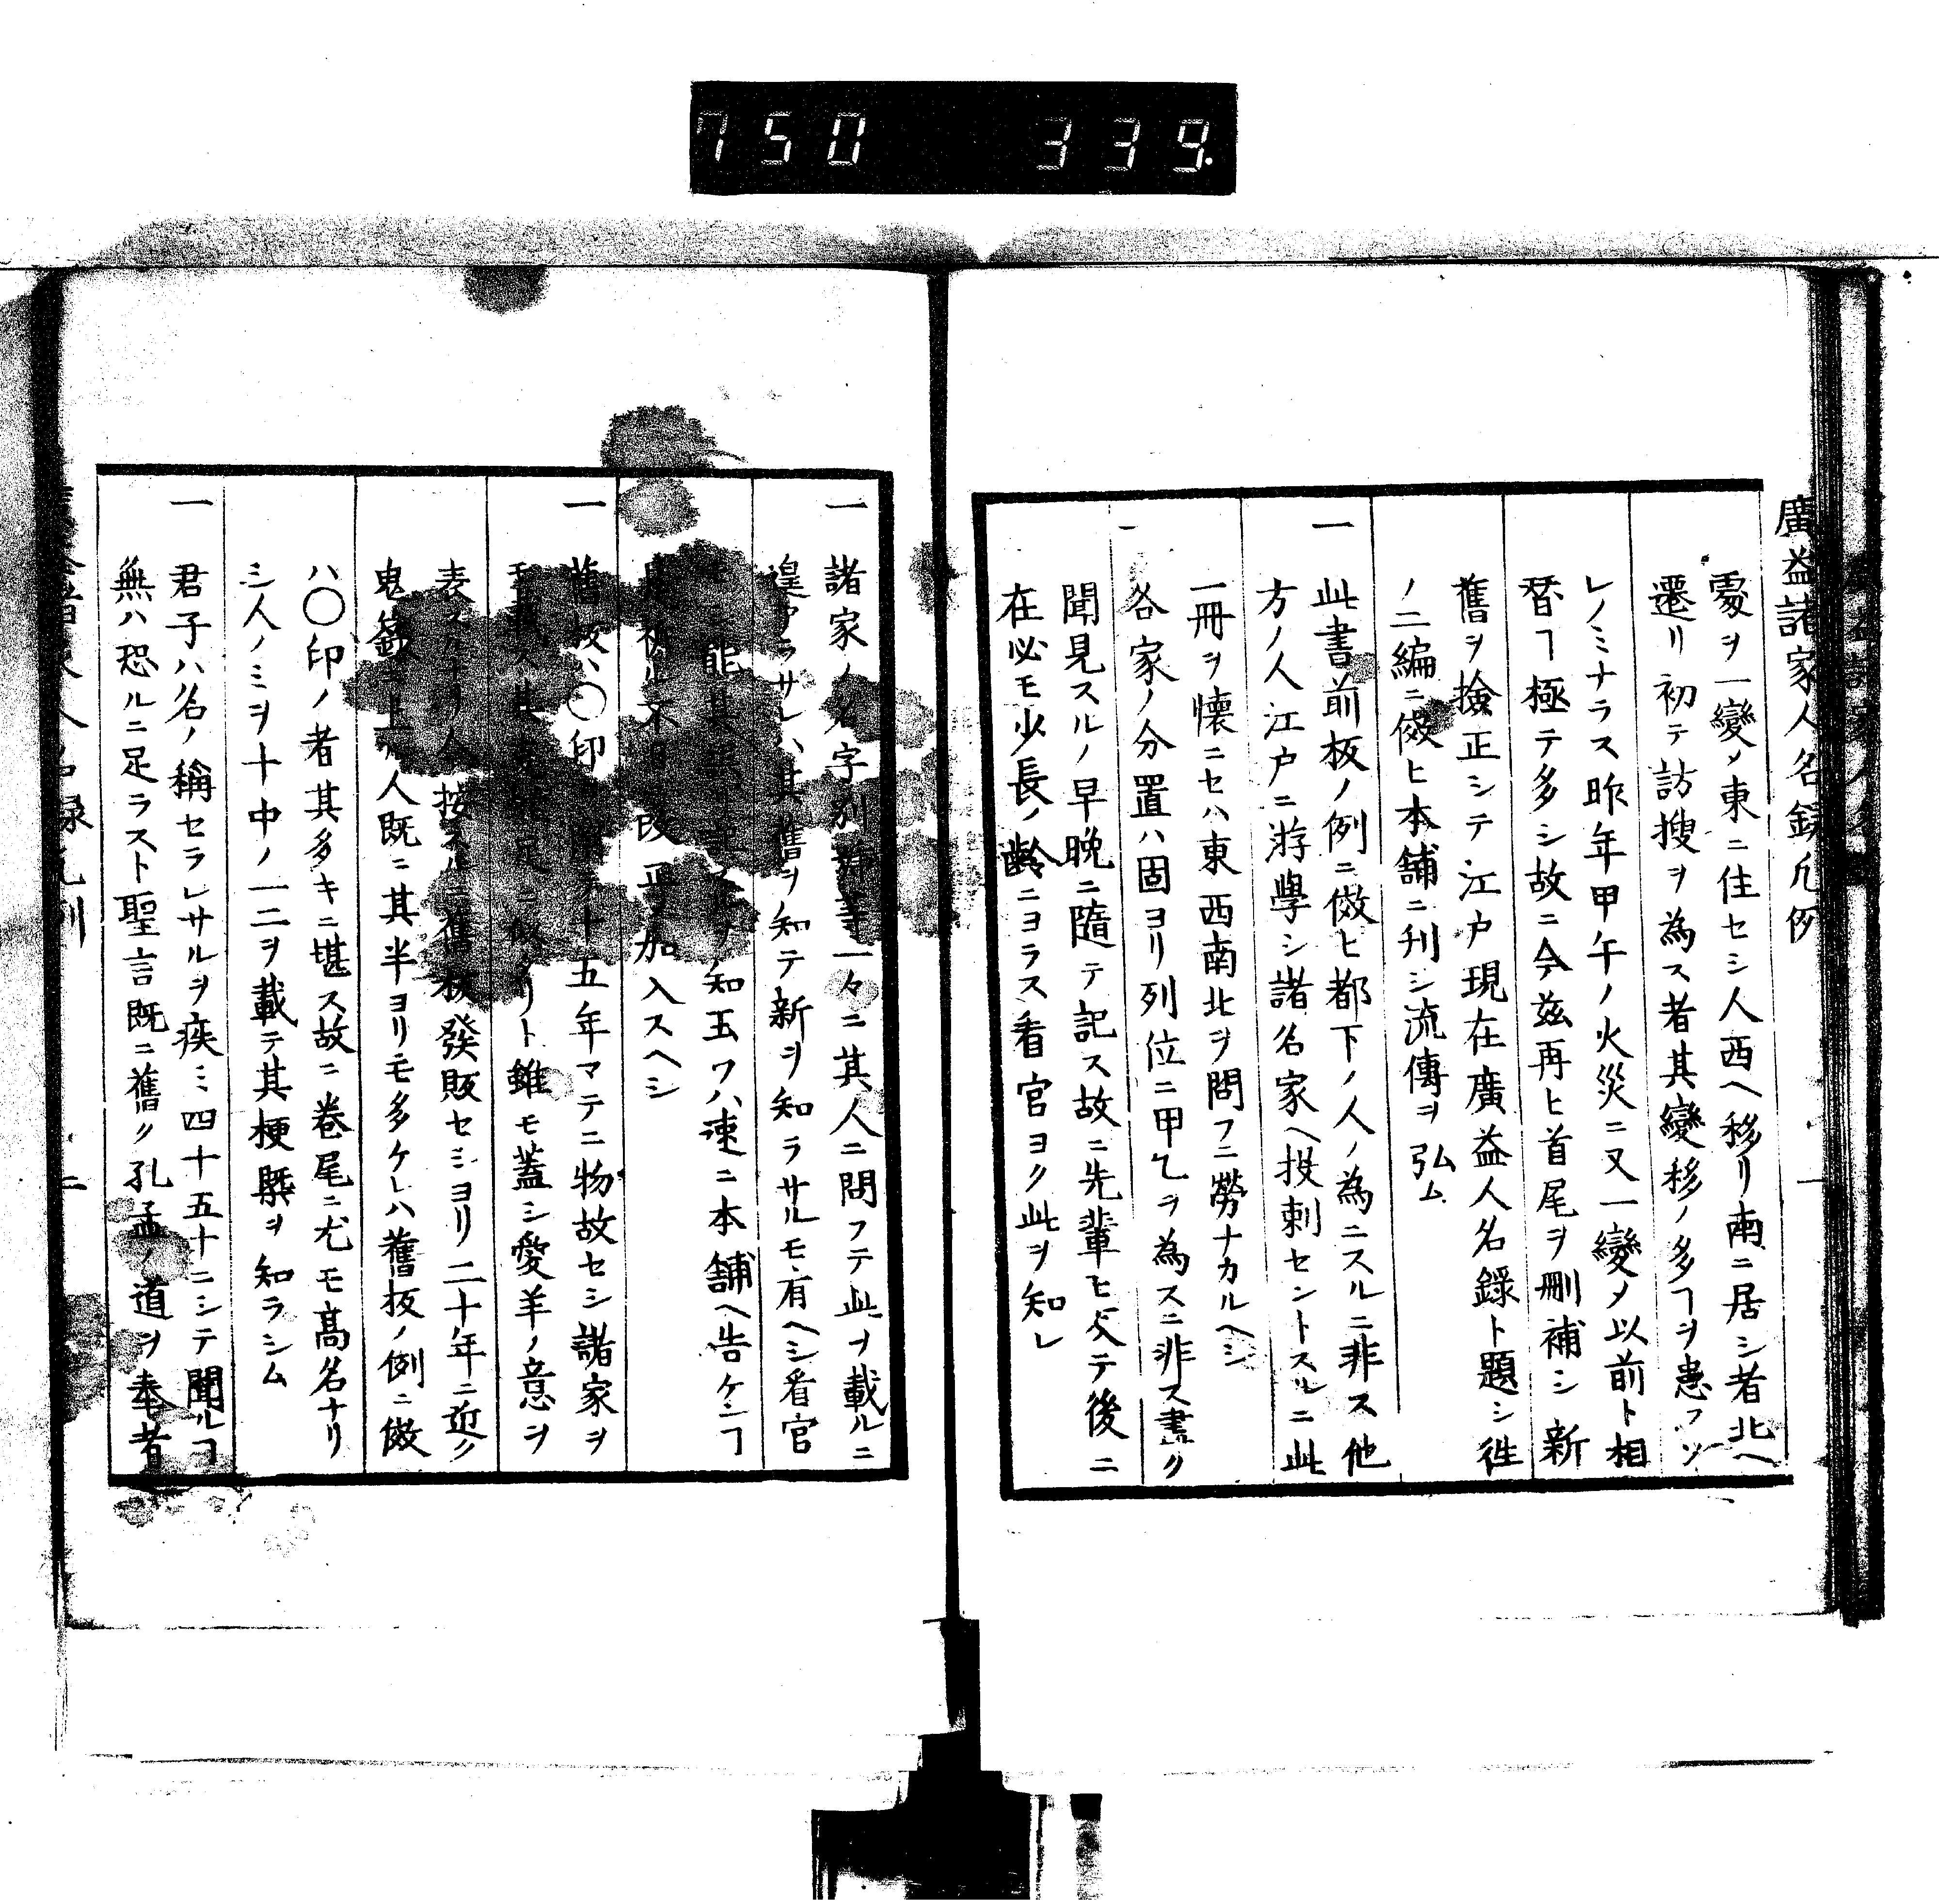 750 339.
廣益諸家人名録凡例
一
處ヲ一變ノ東ニ住セシ人西ヘ移リ南ニ居シ者北ヘ
遷リ初テ訪搜ヲ為ス者其變移ノ多ヿヲ患フソ
レノミナラス昨年甲午ノ火災ニ又一變メ以前ト相
替ヿ極テ多シ故ニ今茲再ヒ首尾ヲ刪補シ新
舊ヲ撿正シテ江戸現在廣益人名錄ト題シ徃
ノ二編ニ傚ヒ本舗ニ刋シ流傳ヲ弘ム
一 此書前板ノ例ニ傚ヒ都下ノ人ノ為ニスルニ非ス他
方ノ人江戸ニ游學シ諸名家ヘ投刺セントスルニ此
一冊ヲ懐ニセハ東西南北ヲ問フニ勞ナカルヘシ
一 各家ノ分置ハ固ヨリ列位ニ甲乙ヲ為スニ非ス書ク
聞見スルノ早晩ニ隨テ記ス故ニ先輩ヒ反テ後ニ
在必モ少長ノ齢ニヨラス看官ヨク此ヲ知レ
一 諸家ノ名字別号等一々ニ其人ニ問フテ此ヲ載ルニ
遑アラサレハ其舊ヲ知テ新ヲ知ラサルモ有ヘシ看官
能其 知玉ワハ速ニ本舗ヘ告ケンヿ
不日 改正ノ加入スヘシ
一 舊板ハ〇印 十五年マテニ物故セシ諸家ヲ
載ス其 ニ 傚 リト雖モ蓋シ愛羊ノ意ヲ
表スルナリ今按スルニ舊板發販セシヨリ二十年ニ近ク
鬼錄ニ上ル人既ニ其半ヨリモ多ケレハ舊板ノ例ニ傚
ハ〇印ノ者其多キニ堪ス故ニ巻尾ニ尤モ髙名ナリ
シ人ノミヲ十中ノ一二ヲ載テ其梗槩ヲ知ラシム
一 君子ハ名ノ稱セラレサルヲ疾ミ四十五十ニシテ聞ルヿ
無ハ恐ルニ足ラスト聖言既ニ舊ク孔孟ノ道ヲ奉者
人名録凡例
二